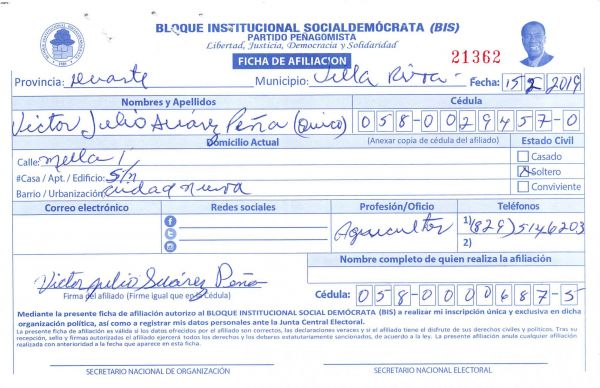 BLOQUE INSTITUCIONAL SOCIALDEMÓCRATA (BIS)
PARTIDO PEÑAGOMISTA
Libertad, Justicia, Democracia y Solidaridad
FICHA DE AFILIACION
21362
Provincia: Duarte Municipio: Villa Riva Fecha: 15 2 2019
Nombres y Apellidos Cédula
Victor Julio Suárez Peña (Quico) 058-0029457-0
Domicilio Actual (Anexar copia de cédula del afiliado) Estado Civil
Calle: Mella 1 Casado
#Casa / Apt. / Edificio: S/n Soltero
Barrio / Urbanización: Ciudad nueva Conviviente
Correo electrónico Redes sociales Profesión/Oficio Teléfonos
Agricultor 1) (829) 5146203
2)
Nombre completo de quien realiza la afiliación
Victor Julio Suárez Peña
Firma del afiliado (Firme igual que en la Cédula)
Cédula: 058-0000687-5
Mediante la presente ficha de afiliación autorizo al BLOQUE INSTITUCIONAL SOCIAL DEMÓCRATA (BIS) a realizar mi inscripción única y exclusiva en dicha
organización política, así como a registrar mis datos personales ante la Junta Central Electoral.
La presente ficha de afiliación es válida si los datos ofrecidos por el afiliado son correctos, las declaraciones veraces y si el afiliado tiene el disfrute de sus derechos civiles y políticos. Tras su
recepción, sello y firmas autorizadas el afiliado ejercerá todos los derechos y los deberes estatutariamente sancionados, de acuerdo a la ley. La presente afiliación anula cualquier afiliación
realizada con anterioridad a la fecha que aparece en esta ficha.
SECRETARIO NACIONAL DE ORGANIZACIÓN SECRETARIO NACIONAL ELECTORAL